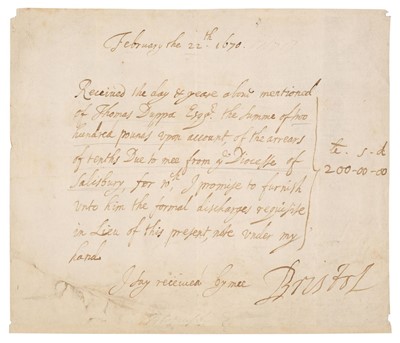 February the 22th 1670.
Received the day & yeare above mentioned
of Thomas Duppa Esqr. the summe of two
hundred pounds upon account of the arrears
of tenths Due to mee from ye Diocesse of
Salesbury, for wch I promise to furnish
unto him the formal discharges requisite
in Lieu of this present note under my
hand.
li - s - d
200-00-00
I say received by mee Bristol